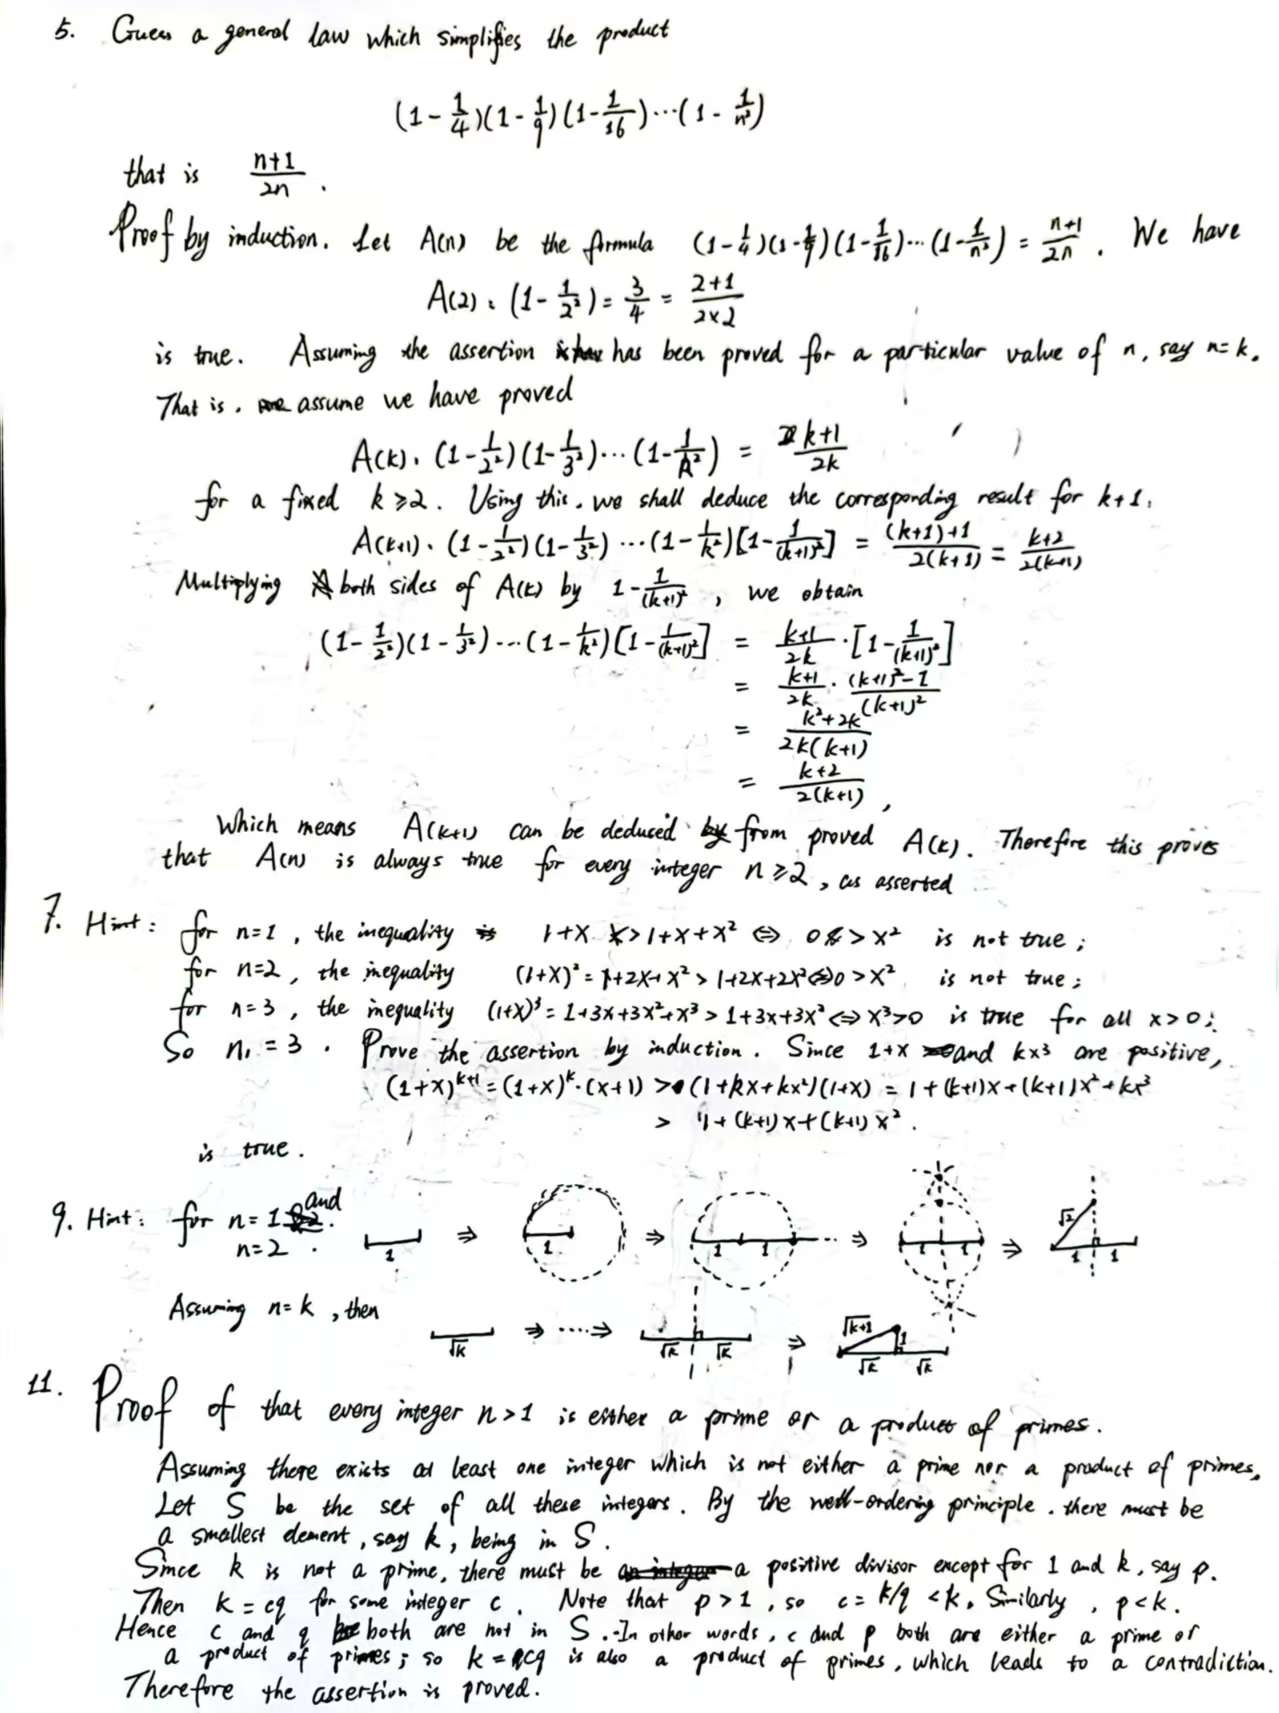 5. Guess a general law which simplifies the product
(1-1/4)(1-1/9)(1-1/16)...(1-1/n²)
that is (n+1)/2n .
Proof by induction. Let A(n) be the formula (1-1/4)(1-1/9)(1-1/16)...(1-1/n²) = (n+1)/2n . We have
A(2): (1-1/2²) = 3/4 = (2+1)/(2×2)
is true. Assuming the assertion has been proved for a particular value of n, say n=k.
That is, assume we have proved
A(k): (1-1/2²)(1-1/3²)...(1-1/k²) = (k+1)/2k
for a fixed k≥2. Using this, we shall deduce the corresponding result for k+1:
A(k+1): (1-1/2²)(1-1/3²)...(1-1/k²)[1-1/(k+1)²] = ((k+1)+1)/(2(k+1)) = (k+2)/(2(k+1))
Multiplying both sides of A(k) by 1-1/(k+1)², we obtain
(1-1/2²)(1-1/3²)...(1-1/k²)[1-1/(k+1)²] = (k+1)/2k · [1-1/(k+1)²]
= (k+1)/2k · ((k+1)²-1)/(k+1)²
= (k²+2k)/(2k(k+1))
= (k+2)/(2(k+1)) ,
Which means A(k+1) can be deduced from proved A(k). Therefore this proves
that A(n) is always true for every integer n≥2, as asserted
7. Hint: for n=1, the inequality 1+x > 1+x+x² ⇔ 0 > x² is not true;
for n=2, the inequality (1+x)² = 1+2x+x² > 1+2x+2x² ⇔ 0 > x² is not true;
for n=3, the inequality (1+x)³ = 1+3x+3x²+x³ > 1+3x+3x² ⇔ x³>0 is true for all x>0;
So n₁=3. Prove the assertion by induction. Since 1+x and kx³ are positive,
(1+x)^(k+1) = (1+x)^k·(x+1) > (1+kx+kx²)(1+x) = 1+(k+1)x+(k+1)x²+kx³
> 1+(k+1)x+(k+1)x².
is true.
9. Hint: for n=1 and
n=2. 1 ⇒ 1 ⇒ 1 1 ⇒ 1 1 ⇒ √2 1 1
Assuming n=k, then √k ⇒ ....⇒ √k √k ⇒ √k+1 1 √k √k
11. Proof of that every integer n>1 is either a prime or a product of primes.
Assuming there exists at least one integer which is not either a prime nor a product of primes,
Let S be the set of all these integers. By the well-ordering principle, there must be
a smallest element, say k, being in S.
Since k is not a prime, there must be a positive divisor except for 1 and k, say p.
Then k=cq for some integer c. Note that p>1, so c=k/q <k. Similarly, p<k.
Hence c and q both are not in S. In other words, c and p both are either a prime or
a product of primes; so k=cq is also a product of primes, which leads to a contradiction.
Therefore the assertion is proved.